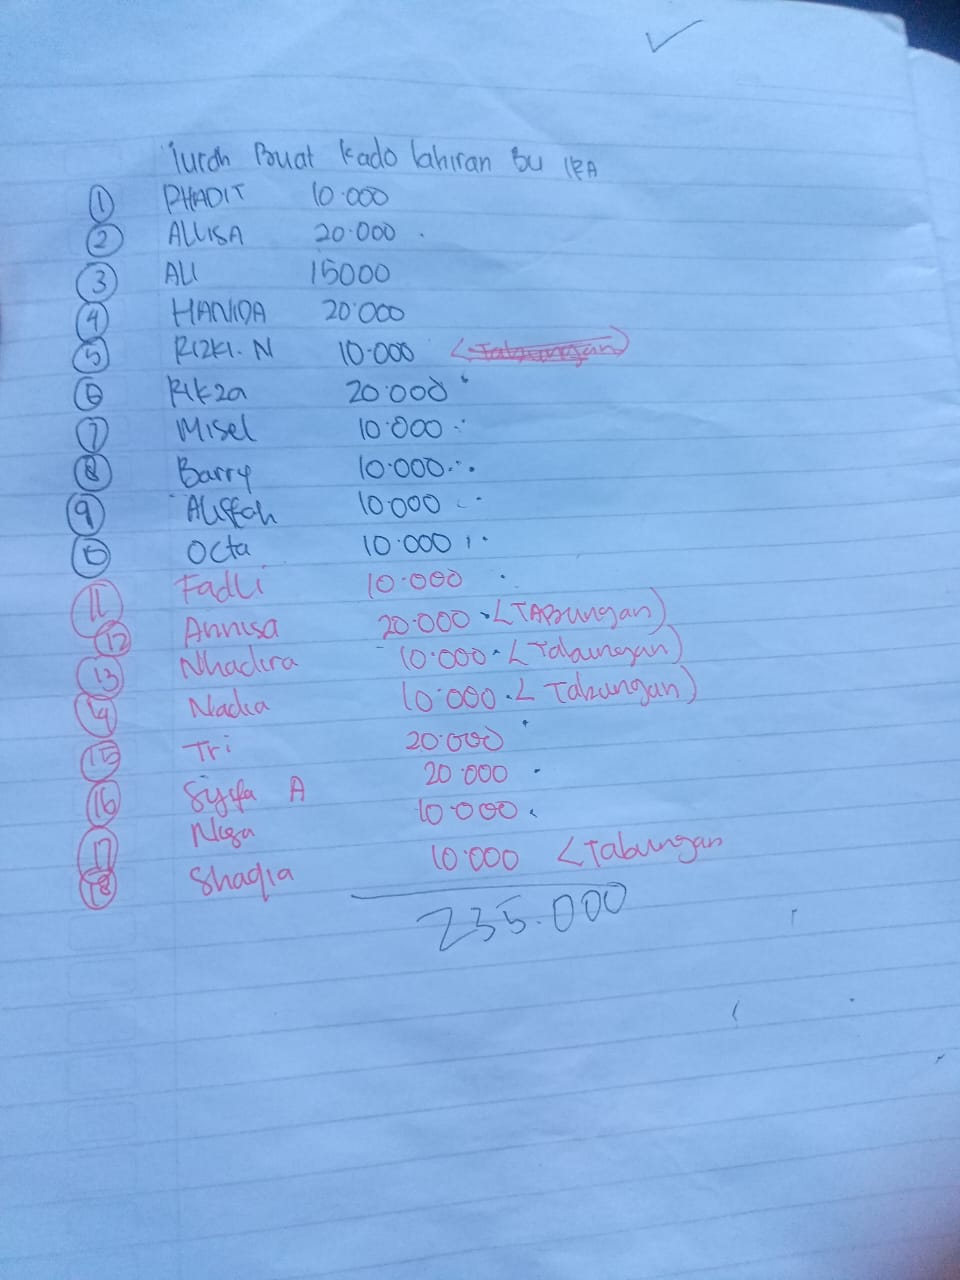 iuran Buat kado lahiran Bu IRA
1 RHADIT 10.000
2 ALLISA 20.000
3 ALI 15000
4 HANIDA 20.000
5 RIZKI. N 10.000 (Tabungan)
6 RIKza 20.000
7 Misel 10.000
8 Barry 10.000
9 Aliffah 10.000
10 Octa 10.000
11 Fadli 10.000
12 Annisa 20.000 (TABungan)
13 Nhadira 10.000 (Tabungan)
14 Nadia 10.000 (Tabungan)
15 Tri 20.000
16 Syifa A 20.000
17 10.000
18 Shaqia 10.000 (Tabungan
235.000